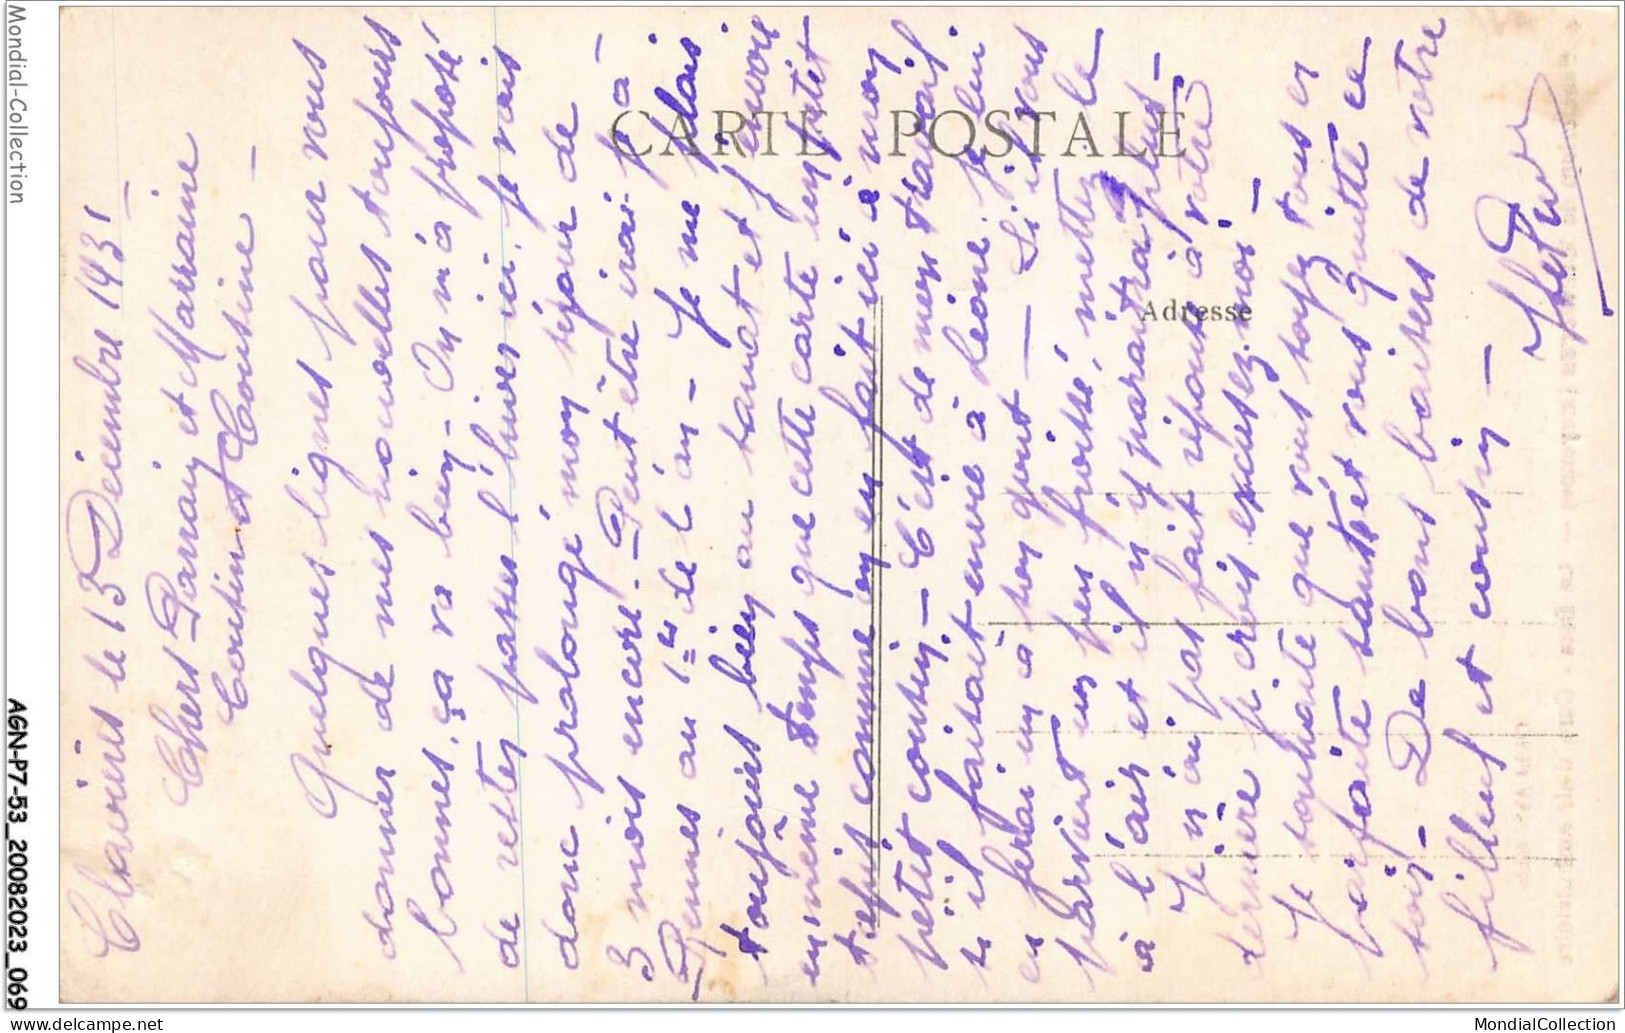 Clavières le 13 Décembre 1931
Chers Parrain et Marraine
Cousin et Cousine
Quelques lignes pour vous
donner de mes nouvelles toujours
bonnes, ça va bien - On m'a proposé
de rester passer l'hiver ici, je vais
donc prolongé mon séjour de
3 mois encore. Peut être irai-je à
Rennes au 1er de l'an - Je me plais
toujours bien au sanat et j'envoie
en même temps que cette carte un petit
tapis comme on en fait ici à mon
petit cousin - C'est de mon travail
si il faisait envie à Léone je lui
en ferai un à son gout - Si il vous
parvient un peu froissé, mettez le
à l'air et il n'y paraitra plus -
Je n'ai pas fait réponse à votre
dernière je crois excusez-moi -
Je souhaite que vous soyez tous en
parfaite santé et vous quitte ce
soir - De bons baisers de votre
filleul et cousin -
CARTE POSTALE
Adresse
Mondial-Collection
AGN-P7-53_20082023_069
delcampe.net
MondialCollection